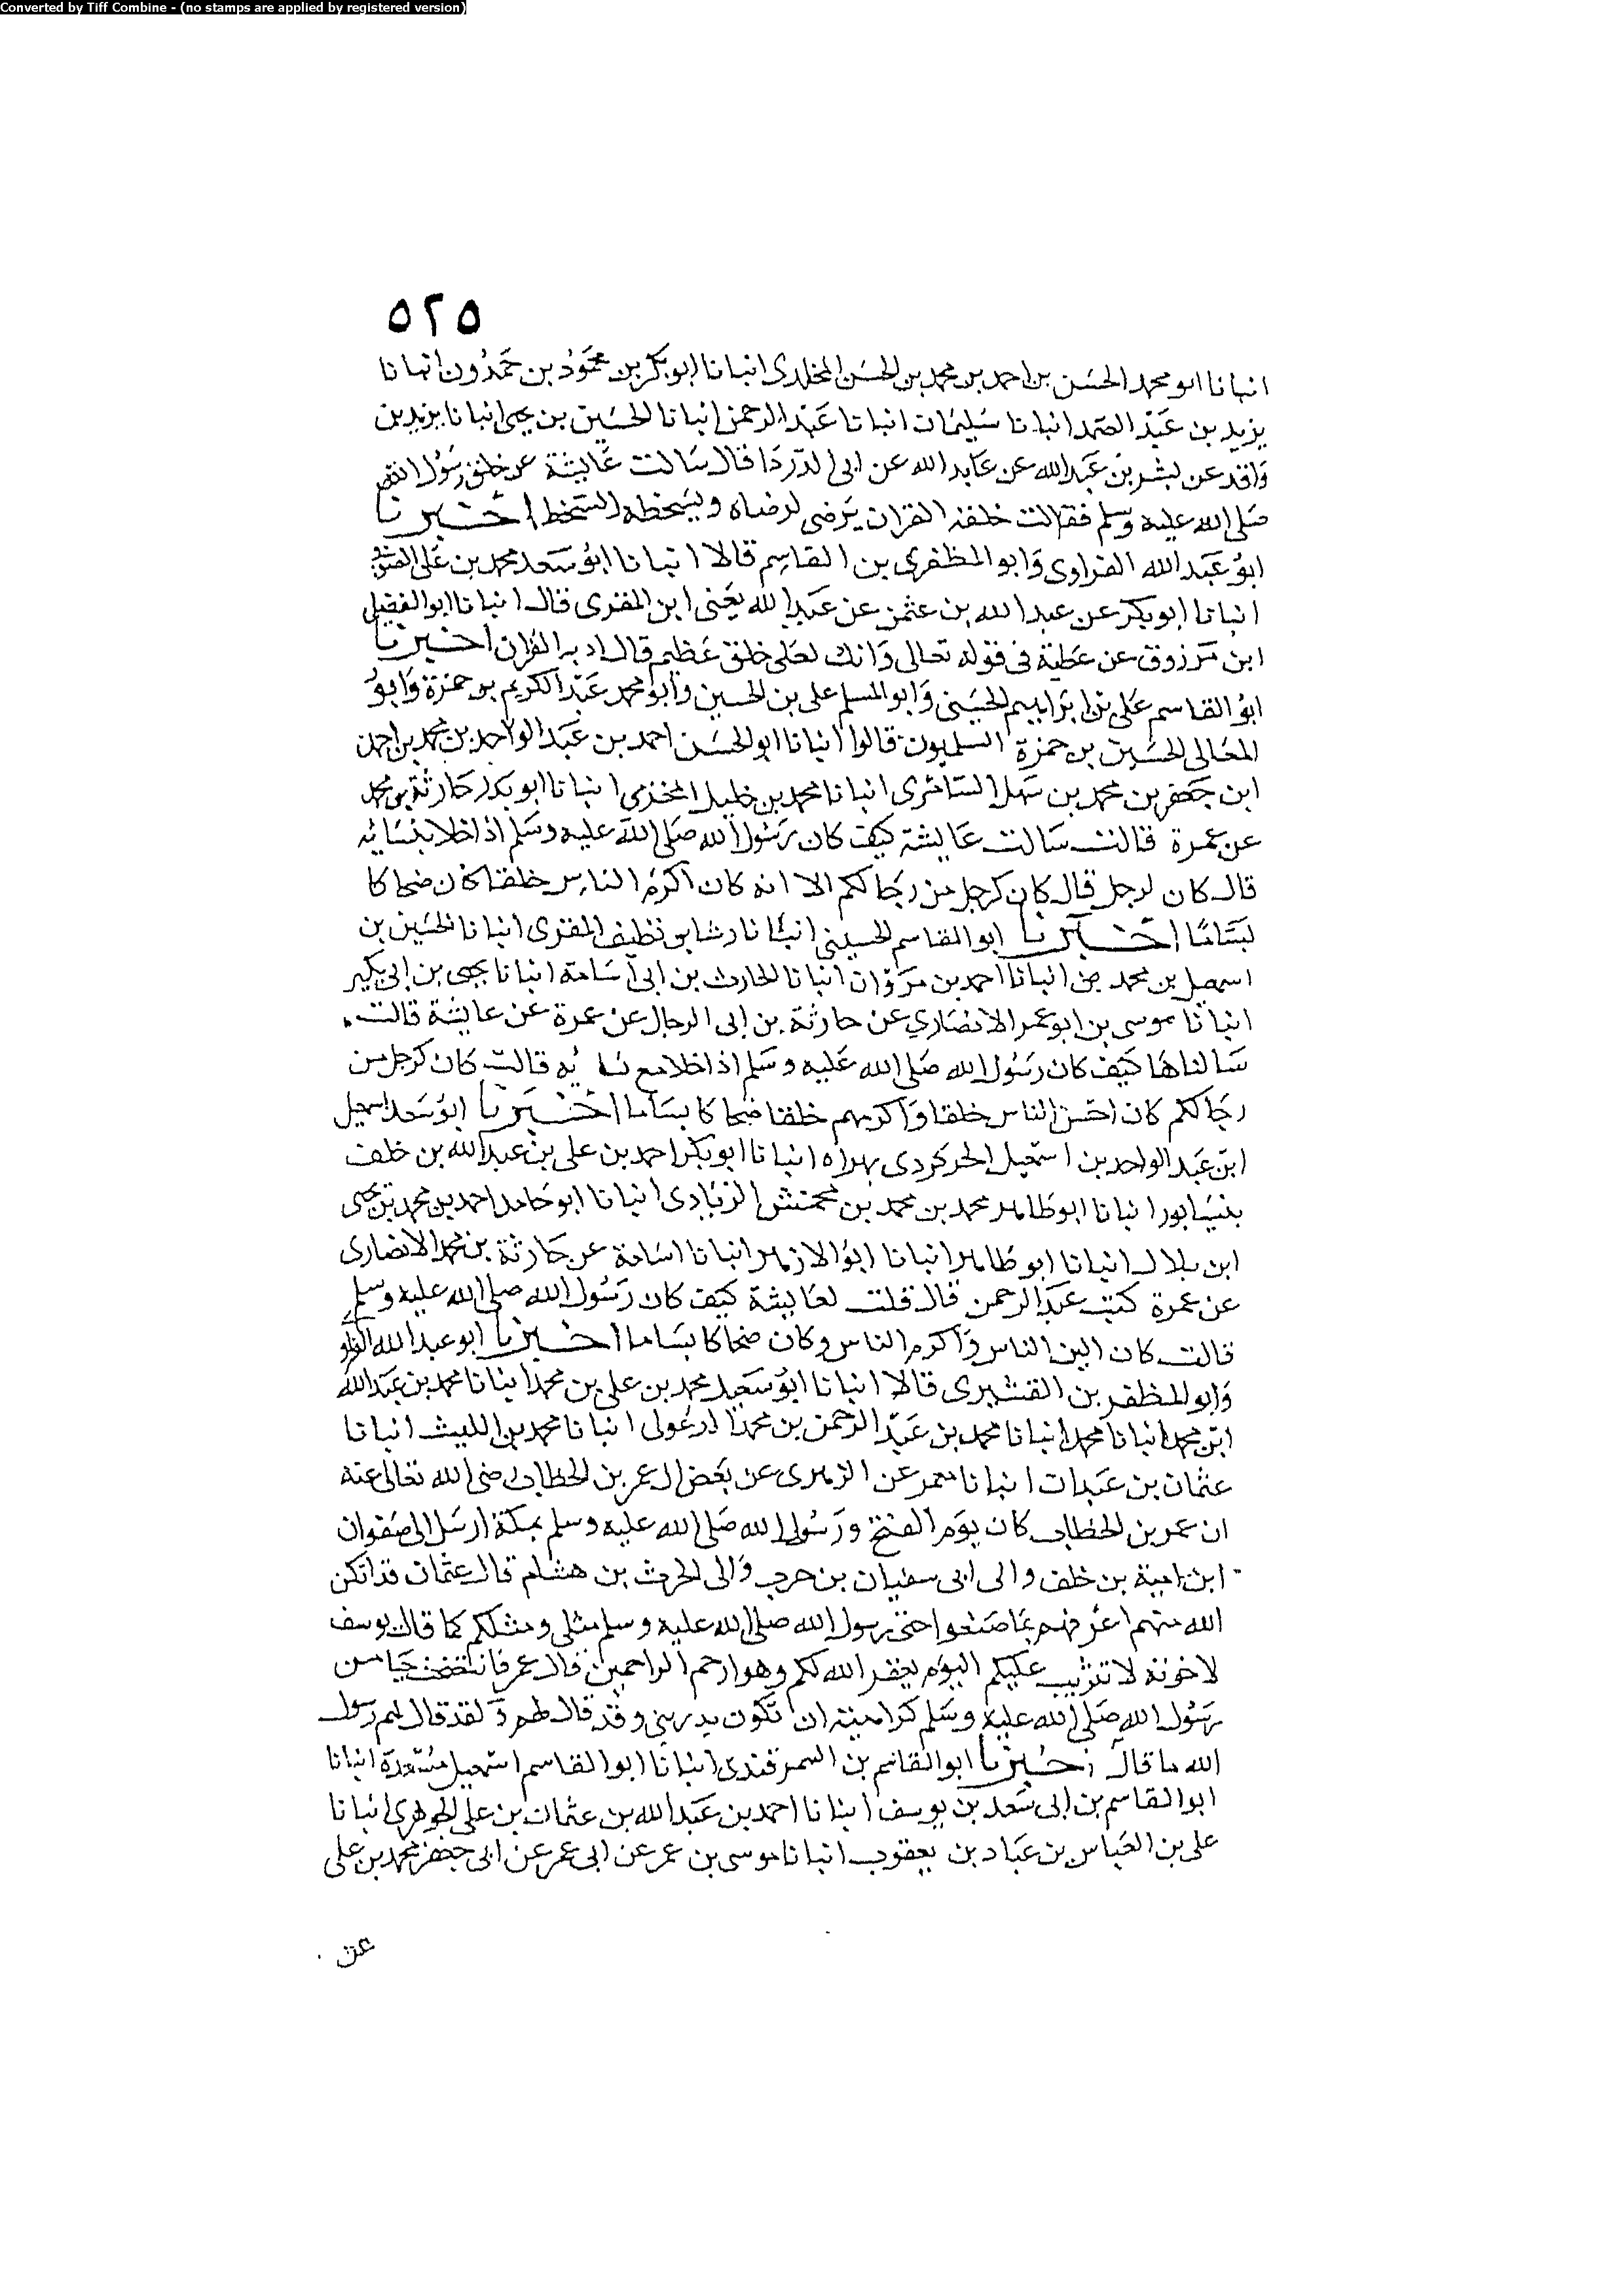 Converted by Tiff Combine - (no stamps are applied by registered version)
٥٢٥
انبانا ابو محمد الحسن بن احمد بن محمد بن الحسن المخلدى انبانا ابو بكر بن محمود بن حمدون انبانا
يزيد بن عبد الصمد انبانا سليمان انبانا عبد الرحمن انبانا الحسين بن يحيى انبانا يزيد بن
واقد عن بشر بن عبد الله عن عايد الله عن ابى الدردا قال سالت عايشة عن خلق رسول
صلى الله عليه وسلم فقالت خلقه القران يرضى لرضاه ويسخطه لسخط اخبرنا
ابو عبد الله الفراوى وابو المظفرى بن القاسم قالا انبانا ابو سعد محمد بن على
انبانا ابو بكر عن عبد الله بن عثمن عن عبد الله يعنى ابن المقرى قال انبانا ابو الفضيل
ابن مرزوق عن عطية فى قوله تعالى وانك لعلى خلق عظيم قال ادب القران اخبرنا
ابو القاسم على بن ابراهيم الحسينى وابو المسلم على بن الحسين وابو محمد عبد الكريم بن حمزة وابو
المعالى الحسين بن حمزة السلميون قالوا انبانا ابو الحسن احمد بن عبد الواحد بن محمد بن احمد
ابن جعفر بن محمد بن سهل السامرى انبانا محمد بن خليل المخزمى انبانا ابو بدر حارثة بن محمد
عن عمرة قالت سالت عايشة كيف كان رسول الله صلى الله عليه وسلم اذا خلا بنسائه
قال كان لرجل قال كان كرجل من رجالكم الا انه كان اكرم الناس خلقا كان ضحاكا
بساما اخبرنا ابو القاسم الحسينى انبانا رشا بن نظيف المقرى انبانا الحسين بن
اسمعيل بن محمد بن انبانا احمد بن مروان انبانا الحارث بن ابى اسامة انبانا يحيى بن ابى بكير
انبانا موسى بن ابو عمر الانصاري عن حارثة بن ابى الرجال عن عمرة عن عايشة قالت
سالناها كيف كان رسول الله صلى الله عليه وسلم اذا خلا مع نسايه قالت كان كرجل من
رجالكم كان احسن الناس خلقا واكرمهم خلقا ضحاكا بساما اخبرنا ابو سعد اسمعيل
ابن عبد الواحد بن اسمعيل الحركردى بهراه انبانا ابو بكر احمد بن على بن عبد الله بن خلف
بنيسابور انبانا ابو طاهر محمد بن محمد بن محمش الزيادى انبانا ابو حامد احمد بن محمد بن يحيى
ابن بلال انبانا ابو طاهر انبانا ابو الازهر انبانا اسامة عن حارثة بن محمد الانصارى
عن عمرة كنيت عبد الرحمن قال قلت لعايشة كيف كان رسول الله صلى الله عليه وسلم
قالت كان الين الناس واكرم الناس وكان ضحاكا بساما اخبرنا ابو عبد الله
وابو المظفر بن القشيرى قالا انبانا ابو سعيد محمد بن على بن محمد انبانا محمد بن عبد الله
ابن محمد انبانا محمد انبانا محمد بن عبد الرحمن بن محمد الدغولى انبانا محمد بن الليث انبانا
عثمان بن عبدان انبانا معمر عن الزهرى عن بعض ال عمر بن الخطاب رضى الله تعالى عنه
ان عمر بن الخطاب كان يوم الفتح ورسول الله صلى الله عليه وسلم بمكة ارسل الى صفوان
ابن امية بن خلف والى ابى سفيان بن حرب والى الحرث بن هشام قال عثمان قد امكن
الله منهم اعرفهم بما صنعوا حتى رسول الله صلى الله عليه وسلم مثلى ومثلكم كما قال يوسف
لاخوته لا تثريب عليكم اليوم يغفر الله لكم وهو ارحم الراحمين قال عمر فانتفضت حيا من
رسول الله صلى الله عليه وسلم كراهية ان تكون بدرت منى وقد قال لهم ولقد قال لهم رسول
الله ما قال اخبرنا ابو القاسم بن السمرقندى انبانا ابو القاسم اسمعيل مسعدة انبانا
ابو القاسم بن ابى سعد بن يوسف انبانا احمد بن عبد الله بن عثمان بن على الجوهرى انبانا
على بن العباس بن عباد بن يعقوب انبانا موسى بن عمر عن ابى عمر عن ابى جعفر محمد بن على
عن